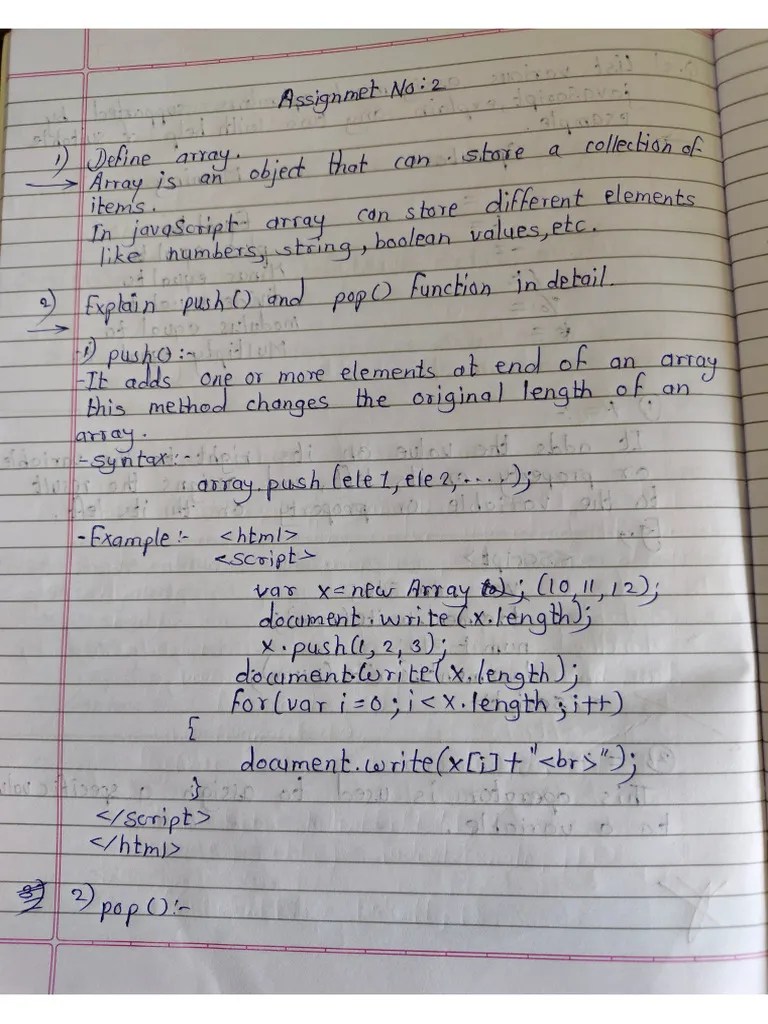 Assignmet No:2
1) Define array.
→ Array is an object that can store a collection of
items.
In javaScript array can store different elements
like numbers, string, boolean values, etc.
2) Explain push() and pop() function in detail.
→
1) push():-
-It adds one or more elements at end of an array
this method changes the original length of an
array.
-syntax:-
array.push(ele1, ele2, .....);
-Example:- <html>
<script>
var x=new Array ; (10,11,12);
document.write(x.length);
x.push(1, 2, 3);
document.write(x.length);
for(var i=0; i<x.length; i++)
{
document.write(x[i]+"<br>");
}
</script>
</html>
2) pop():-